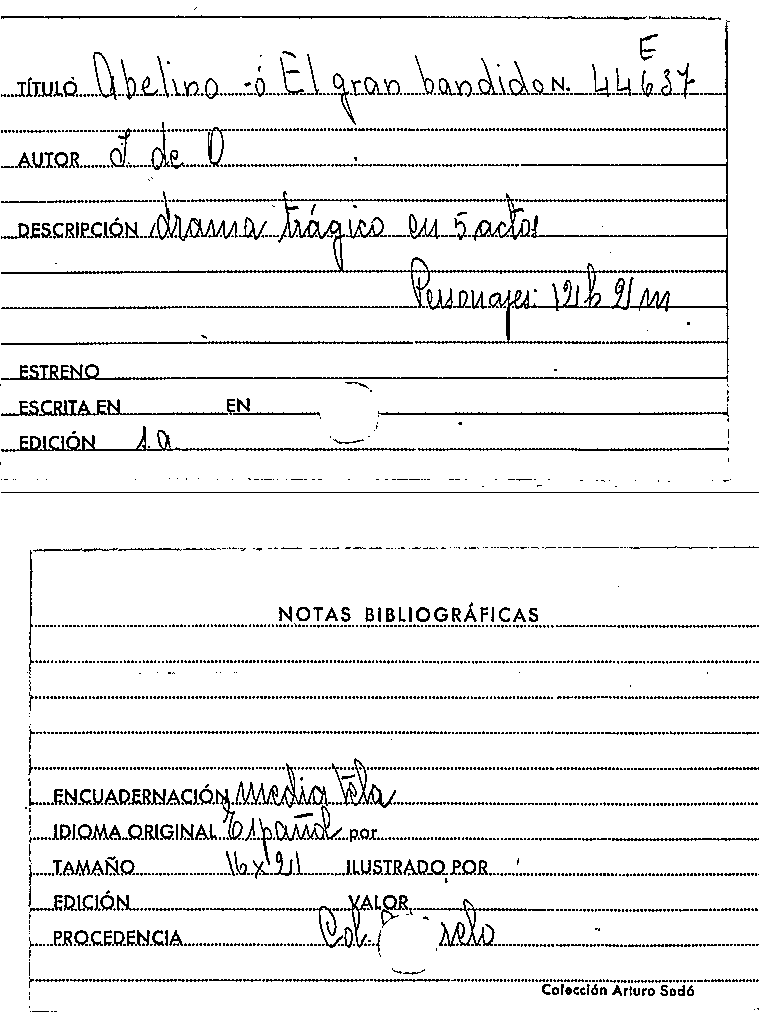 E
TÍTULO Abelino -ó El gran bandido N. 44637
AUTOR J. de O
DESCRIPCIÓN drama trágico en 5 actos
Personajes: 12 h 2 m
ESTRENO
ESCRITA EN EN
EDICIÓN 1a
NOTAS BIBLIOGRÁFICAS
ENCUADERNACIÓN media tela
IDIOMA ORIGINAL Español por
TAMAÑO 16x21 ILUSTRADO POR
EDICIÓN VALOR
PROCEDENCIA Col.
Colección Arturo Sedó